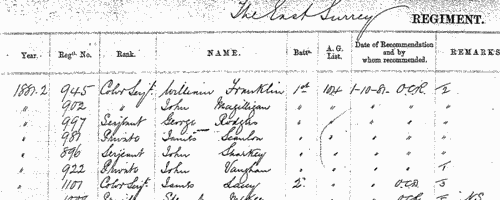 The East Surrey REGIMENT.
Year. Regtl. No. Rank. NAME. Battn. A. G. List. Date of Recommendation and by whom recommended. REMARKS
1881-2 945 Color Serjt. William Franklin 1st 104 1-10-81 O.C.R. 1/2
" 902 " John Magilligan " " " " "
" 997 Serjeant George Rodgers " " " "
" 987 Private James Scanlon " " " "
" 896 Serjeant John Sharkey " " " "
" 922 Private John Vaughan " " " "
" 1101 Color Serjt. James Lacey 2 " " O.C.R.